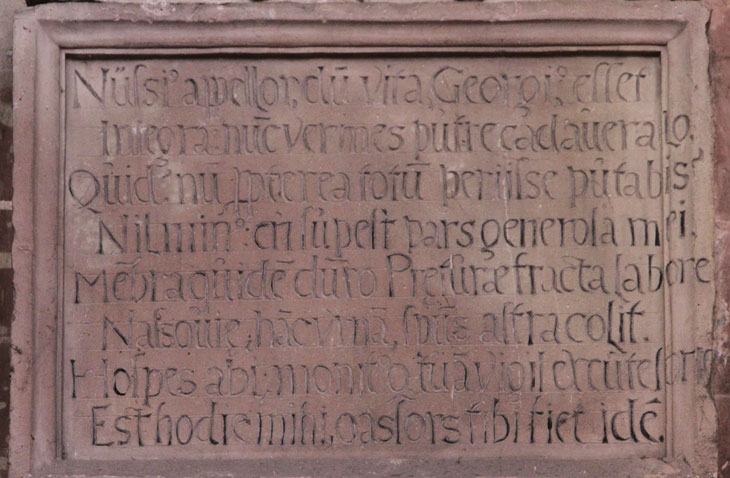 Nüssi⁹ appellor, dū vita, Georgi⁹ esset
Integra: nūc vermes putre cadauera lo,
Quid ē: nū ꝓpterea totū periisse putabis
Nil min⁹: en supest pars generosa mei.
Mēbra quidē duro Preturæ fracta labore
Nasq hāc vrnā, spūs astra colit.
Hospes abi: monit⁹ q tuā vigil excute sortē
Est hodie mihi, cras sors tibi fiet idē.